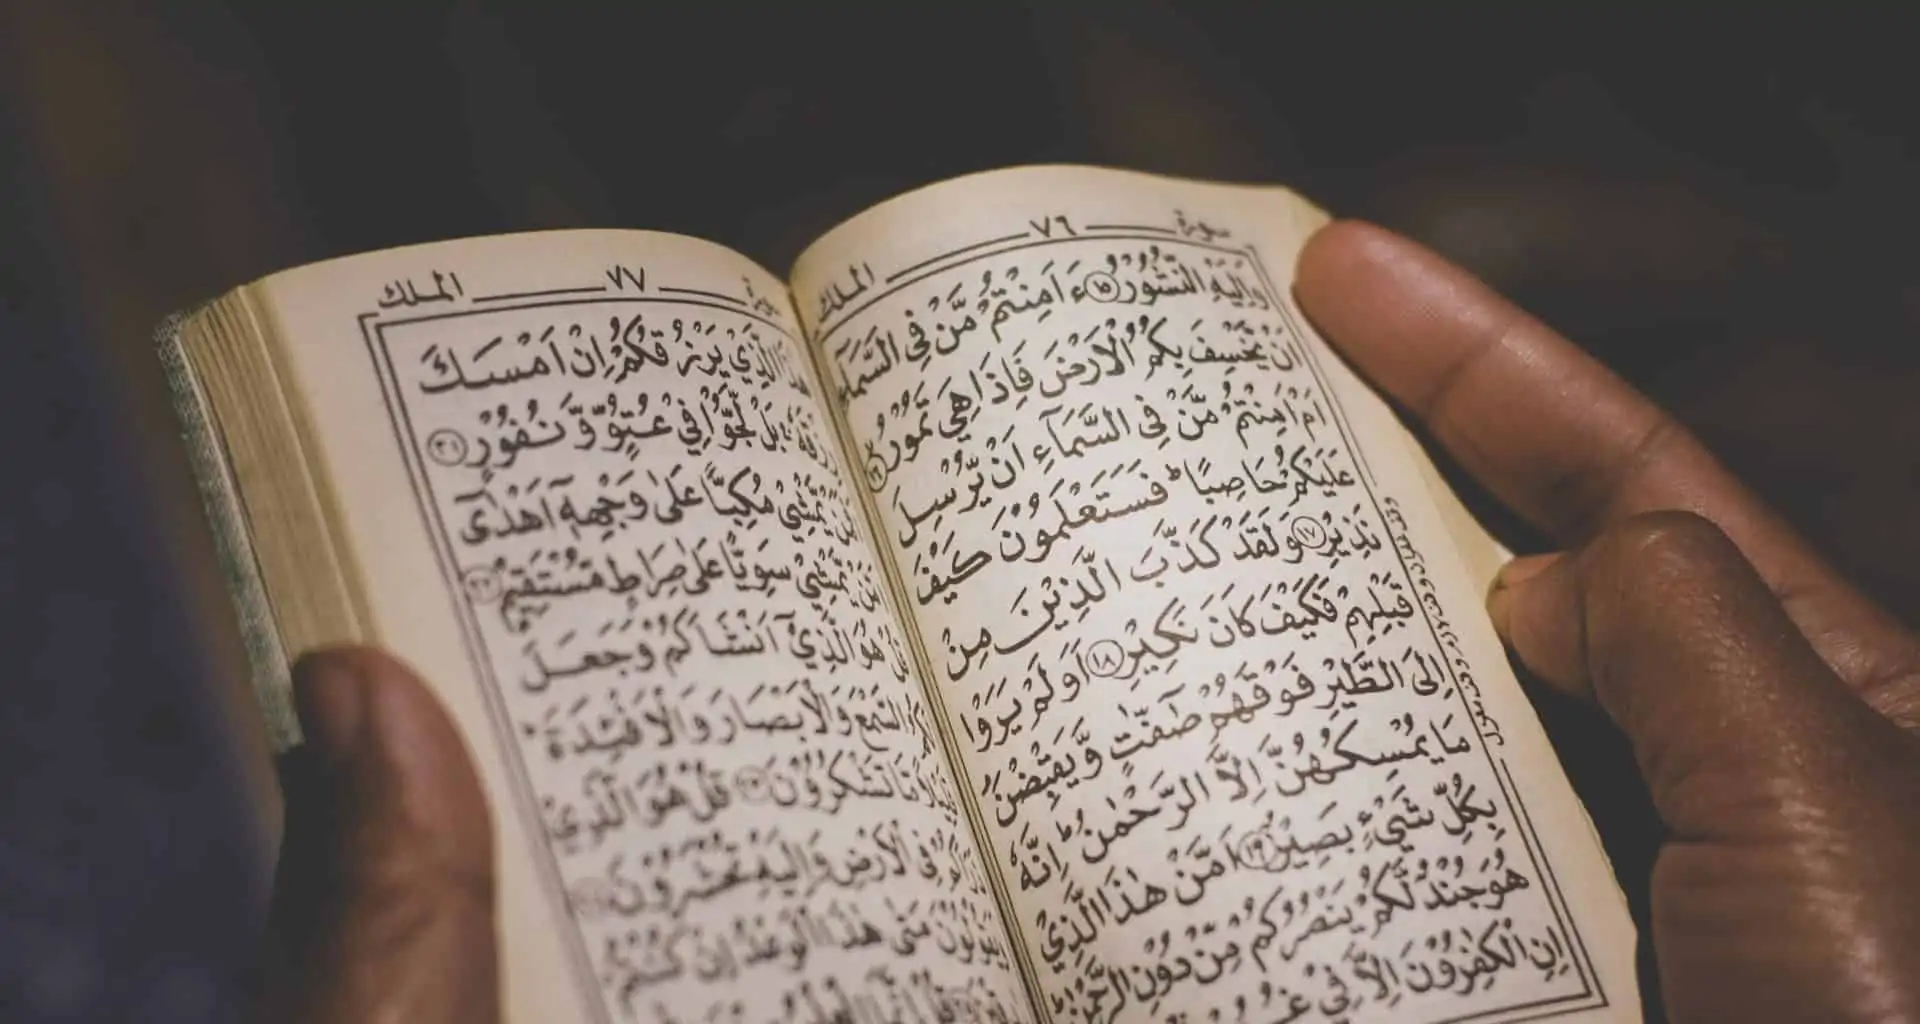 سورة ٧٦ الملك
وَاِلَيْهِ النُّشُوْرُ ۝١٥ ءَاَمِنْتُمْ مَّنْ فِى السَّمَآءِ
اَنْ يَّخْسِفَ بِكُمُ الْاَرْضَ فَاِذَا هِىَ تَمُوْرُ ۝١٦
اَمْ اَمِنْتُمْ مَّنْ فِى السَّمَآءِ اَنْ يُّرْسِلَ
عَلَيْكُمْ حَاصِبًا ؕ فَسَتَعْلَمُوْنَ كَيْفَ
نَذِيْرِ ۝١٧ وَلَقَدْ كَذَّبَ الَّذِيْنَ مِنْ
قَبْلِهِمْ فَكَيْفَ كَانَ نَكِيْرِ ۝١٨ اَوَلَمْ يَرَوْا
اِلَى الطَّيْرِ فَوْقَهُمْ صٰٓفّٰتٍ وَّيَقْبِضْنَ
مَا يُمْسِكُهُنَّ اِلَّا الرَّحْمٰنُ ؕ اِنَّهٗ
بِكُلِّ شَىْءٍ بَصِيْرٌ ۝١٩ اَمَّنْ هٰذَا الَّذِىْ
هُوَ جُنْدٌ لَّكُمْ يَنْصُرُكُمْ مِّنْ دُوْنِ الرَّحْمٰنِ ؕ
اِنِ الْكٰفِرُوْنَ اِلَّا فِىْ
سورة ٧٧ الملك
الَّذِىْ يَرْزُقُكُمْ اِنْ اَمْسَكَ
رِزْقَهٗ ۚ بَلْ لَّجُّوْا فِىْ عُتُوٍّ وَّنُفُوْرٍ
يَّمْشِىْ مُكِبًّا عَلٰى وَجْهِهٖٓ اَهْدٰٓى
يَّمْشِىْ سَوِيًّا عَلٰى صِرَاطٍ مُّسْتَقِيْمٍ
هُوَ الَّذِىْٓ اَنْشَاَكُمْ وَجَعَلَ
السَّمْعَ وَالْاَبْصَارَ وَالْاَفْئِدَةَ ؕ
مَّا تَشْكُرُوْنَ ۝٢٣ قُلْ هُوَ الَّذِىْ
فِى الْاَرْضِ وَاِلَيْهِ تُحْشَرُوْنَ
يَقُوْلُوْنَ مَتٰى هٰذَا الْوَعْدُ اِنْ كُنْتُمْ